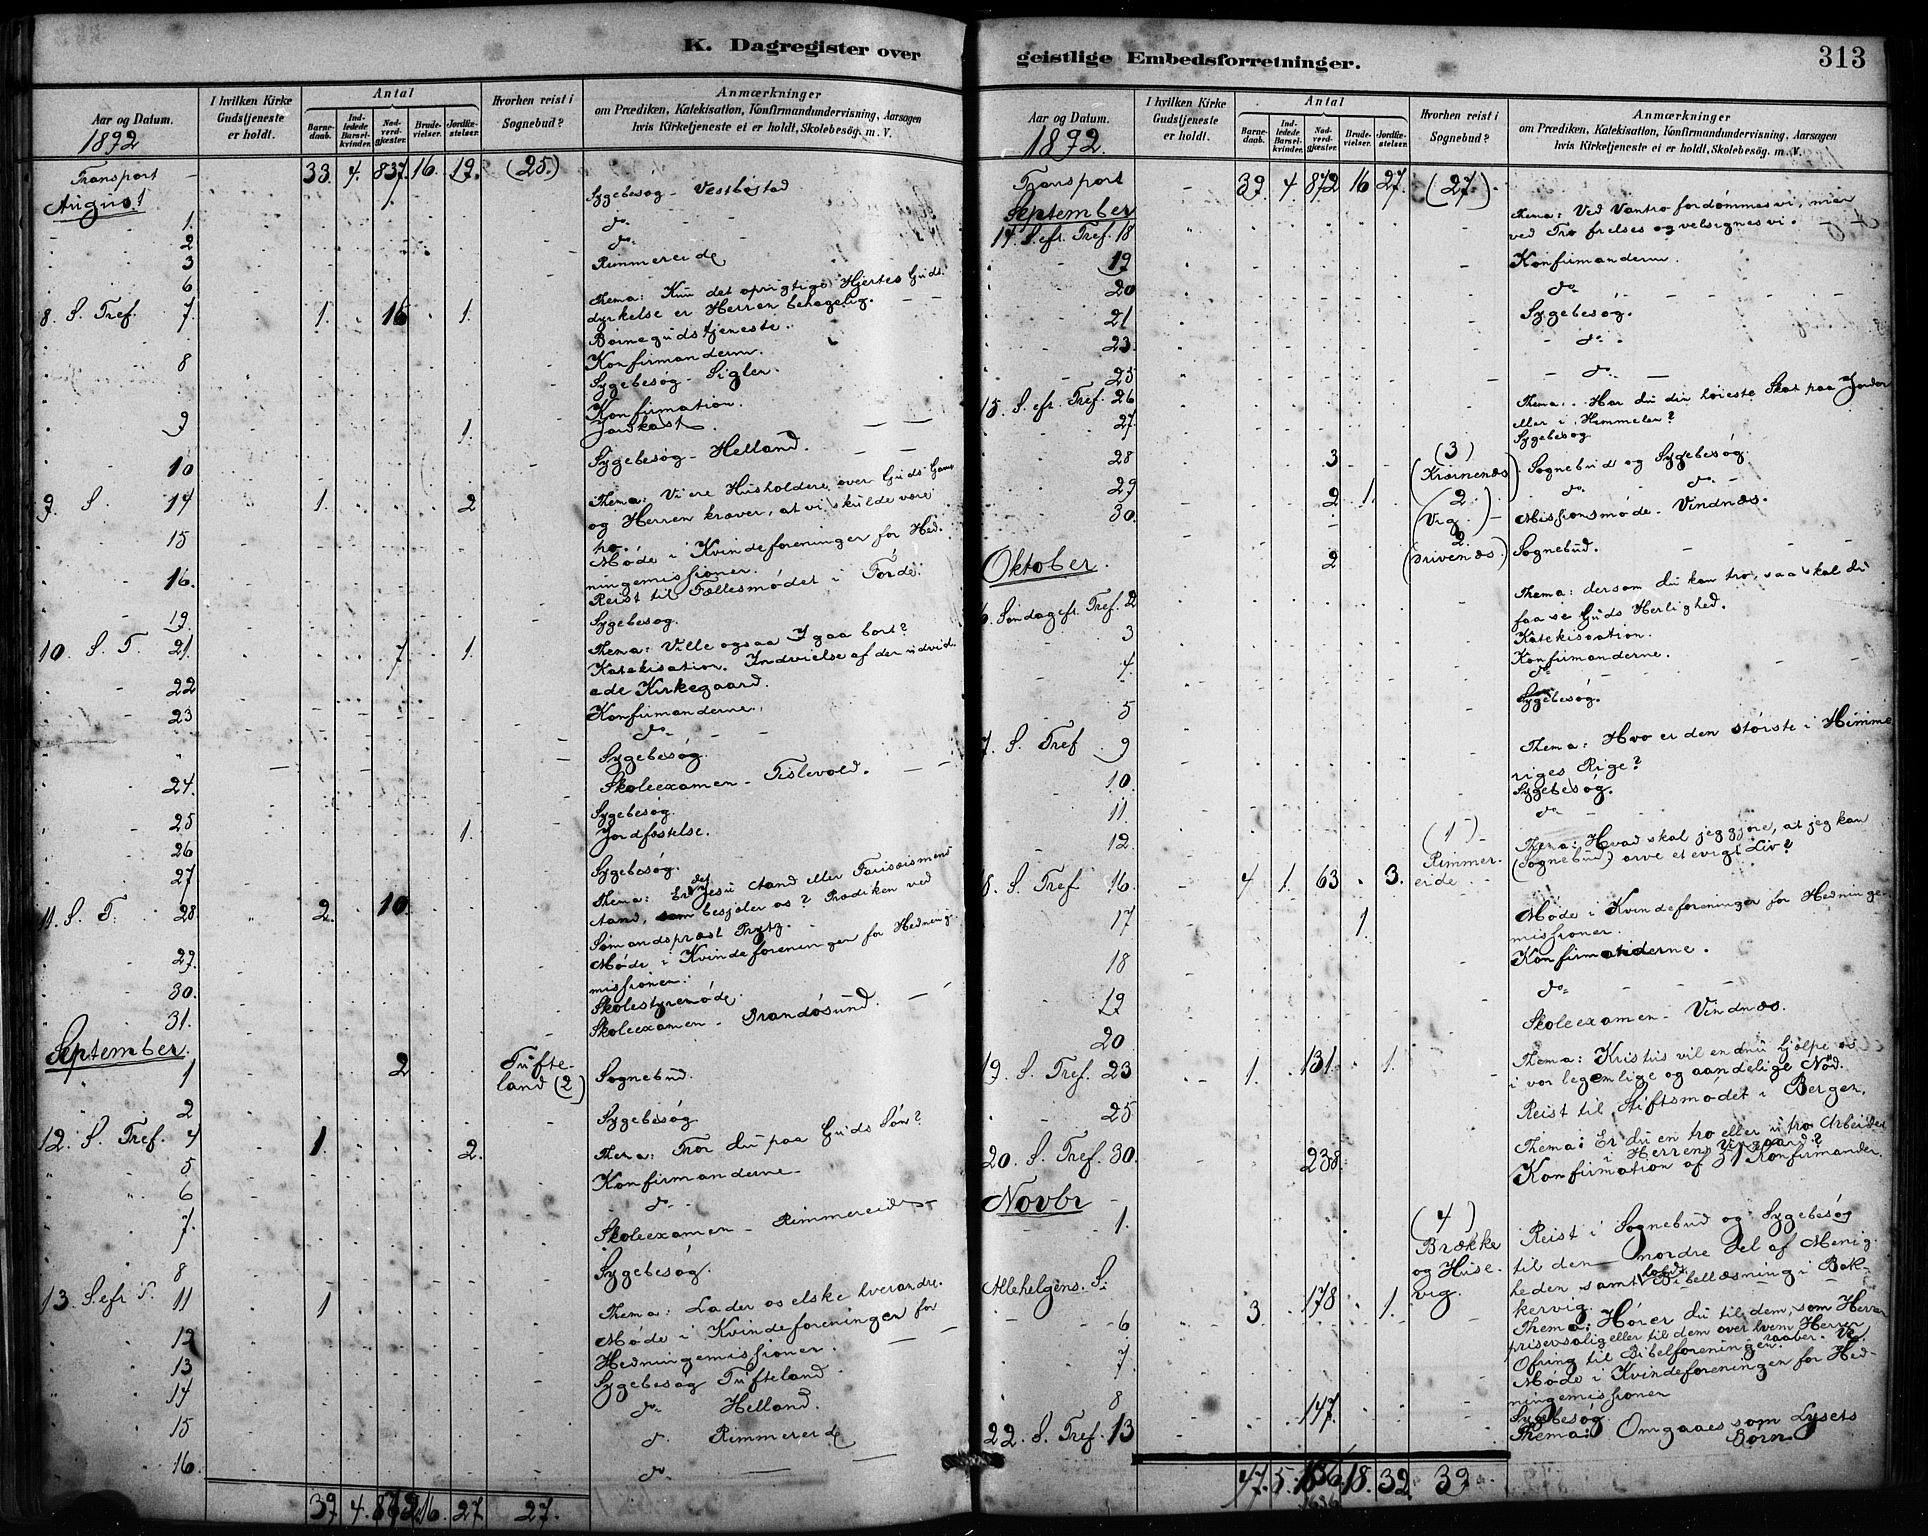 K. Dagregister over
Aar og Datum.
1892
I hvilken Kirke Gudstjeneste er holdt.
Antal
Barnedaab.
Indledede Barselkvinder.
Nadverdgjester.
Brudevielser.
Jordfæstelser.
Hvorhen reist i Sognebud?
Anmærkninger
om Prædiken, Katekisation, Konfirmandundervisning, Aarsagen
hvis Kirketjeneste ei er holdt, Skolebesög. m. V.
Transport - 33. 4. 837. 16. 19. (25.)
August
1. Sygebesøg - Vestbøstad
2 do
3 do
6 Rimmereide
8. S. Tref. 7. 1. 16 1. Thema: Kun det oprigtige Hjertes Guds
dyrkelse er Herren behagelig.
Børnegudstjeneste.
8 Konfirmanderne.
Sygebesøg - Sigler.
Konfirmation.
9 1. Jordkast.
10 Sygebesøg - Helland.
9. S. 14 1. 2 Thema: Vi ere Husholdere over Guds Gaver
og Herren kræver, at vi skulde være
tro.
15 Møde i Kvindeforeninger for Hed-
ningemissionen.
16. Reist til Fællesmødet i Førde.
19. Sygebesøg.
10. S. T. 21. 7 1. Thema: Ville ogsaa I gaa bort?
Katekisation. Indvielse af den udvid-
ede Kirkegaard.
22 Konfirmanderne.
23 do
Sygebesøg.
24. Skoleexamen - Tislevold.
25 Sygebesøg.
26 1. Jordfæstelse.
27 Sygebesøg.
11. S. T. 28. 2. 10. Thema: Er det Jesu Aand eller Farisæismens
Aand, som besjæler os? Prædiken ved
Sømandspræst Prytz.
29. Møde i Kvindeforeninger for Hedning-
missionen.
30. Skolestyremøde.
31. Skoleexamen - Brandøsund.
September.
1 2 Tufte-
land (2) Sognebud.
2 Sygebesøg
12. S. Tref. 4 1. 2. Thema: Tror du paa Guds Søn?
5 Konfirmanderne
6 do
7. Skoleexamen - Rimmereide
8 Sygebesøg.
13. S. efr T. 11 1 Thema: Lader os elske hverandre.
12 Møde i Kvindeforeninger for
Hedningemissionen.
13 Sygebesøg Tufteland
14 do Helland.
15 do Rimmereide
16. do
39 4. 872. 16. 27 27.
geistlige Embedsforretninger.
313
Aar og Datum.
1892.
I hvilken Kirke Gudstjeneste er holdt.
Antal
Barnedaab.
Indledede Barselkvinder.
Nadverdgjester.
Brudevielser.
Jordfæstelser.
Hvorhen reist i Sognebud?
Anmærkninger
om Prædiken, Katekisation, Konfirmandundervisning, Aarsagen
hvis Kirketjeneste ei er holdt, Skolebesög. m. V.
Transport - 39. 4. 872 16 27. (27.)
September
14. S. efr. Tref. 18 Thema: Ved Vantro fordømmes vi, men
ved Tro frelses og velsignes vi.
19 Konfirmanderne.
20 do
21 Sygebesøg.
23. do
25 do
15. S. efr. Tref. 26 Thema: Har du din høieste Skat paa Jorden
eller i Himmelen?
27. Sygebesøg
28 3 (3)
(Kræmenæs) Sognebud og Sygebesøg.
29 2 1. 2
(Vig.) do do
30. Missionsmøde - Vindnæs.
2.
Oktober. 2 Sognebud.
6. Søndag efr. Tref. 2 Thema: dersom du kan tro, saa skal du
faa se Guds Herlighed.
3 Katekisation.
4. Konfirmanderne.
do
5 Sygebesøg.
7. S. Tref. 9 Thema: Hvo er den største i Himme-
riges Rige?
10. Sygebesøg.
11. do
12. (1)
Rimmer-
eide Thema: Hvad skal jeg gjøre, at jeg kan
(Sognebud) arve et evigt Liv?
8. S. Tref 16. 4 1. 63 3.
17 1 Møde i Kvindeforeninger for Hedninge-
missionen.
18 Konfirmanderne.
19 do
20 Skoleexamen - Vindnæs.
19. S. Tref. 23 1. 131. 1. Thema: Kristus vil endnu hjælpe os
i vor legemlige og aandelige Nød.
25 Reist til Stiftsmødet i Bergen.
20. S. Tref. 30. 238. Thema: Er du en tro eller utro Arbeider
i Herrens Vingaard?
Konfirmation af 31 Konfirmander.
Novbr
1. (4)
Brække
og Huse-
vig. Reist i Sognebud og Sygebesøg
til den nordre Del af Menig-
heden samt holdt Bibellæsning i Bak-
kervig.
Allehelgens. S.
6 3. 178 1. Thema: Hører du til dem, som Herren
priser salig eller til dem over hvem Herren
raaber. Ve.
Ofring til Bibelforeningen.
7. Møde i Kvindeforeningen for Hed-
ningemissionen
8 Sygebesøg.
22. S. Tref. 13 147. Thema: Omgaaes som Lysets
Børn.
47. 5. 1636. 18. 32. 39
1636